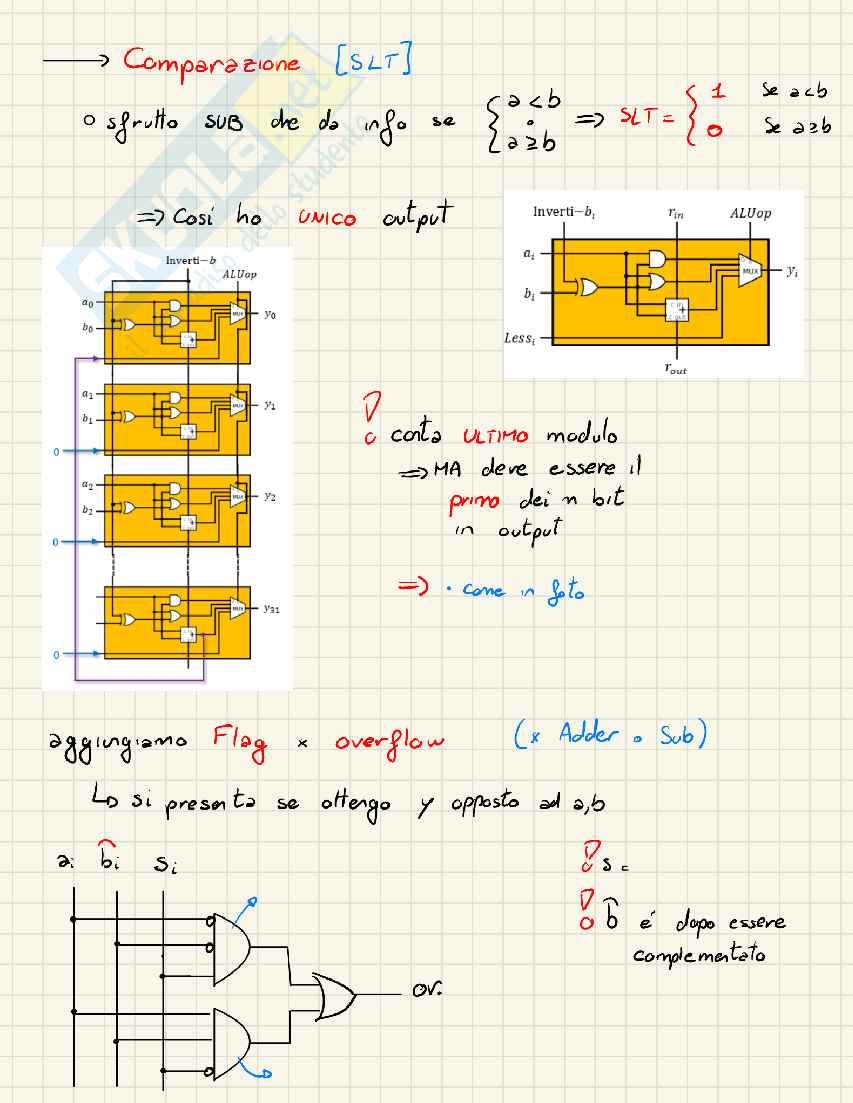 → Comparazione [SLT]
o sfrutto SUB che da info se { a < b o a ≥ b ⇒ SLT = { 1 se a < b
0 se a ≥ b
⇒ Così ho UNICO output
Inverti−bᵢ rᵢₙ ALUop
aᵢ
bᵢ
MUX
yᵢ
Lessᵢ
rₒᵤₜ
Inverti−b
ALUop
a₀
MUX
y₀
b₀
a₁
MUX
y₁
b₁
0
a₂
MUX
y₂
b₂
0
MUX
y₃₁
0
conta ULTIMO modulo
⇒ MA deve essere il
primo dei n bit
in output
⇒ · come in foto
aggiungiamo Flag x overflow (x Adder o Sub)
↳ si presenta se ottengo y opposto ad a,b
aᵢ b̂ᵢ sᵢ
s =
b̂ é dopo essere
complementato
ov.
SKUOLA.net
il paradiso dello studente